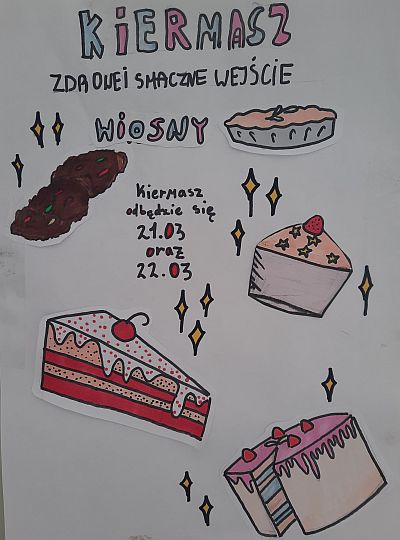 KiERMASZ
ZDROWE i SMACZNE WEJŚCIE
WiOSNY
Kiermasz
odbędzie się
21.03
oraz
22.03